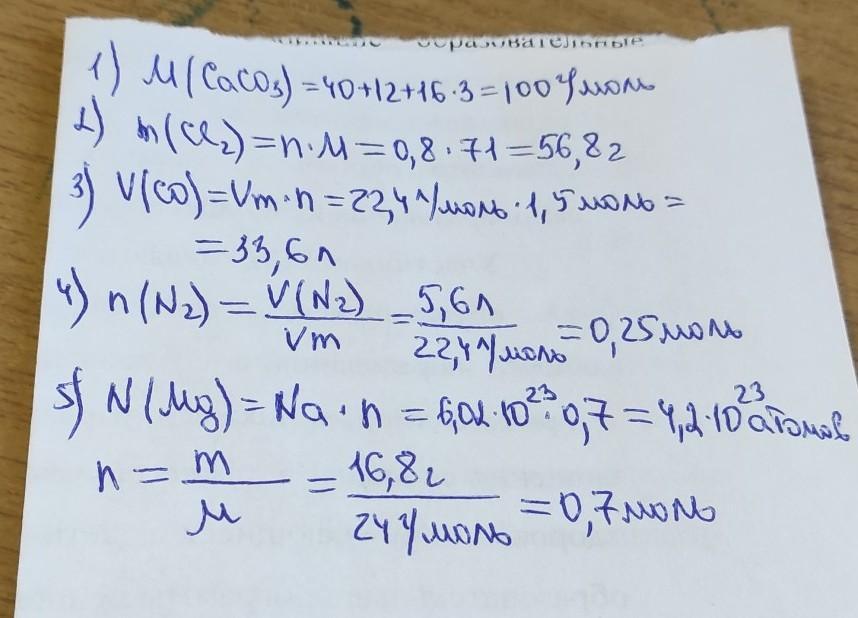 образовательные
1) M(CaCO₃)=40+12+16·3=100 г/моль
2) m(Cl₂)=n·M=0,8·71=56,8г
3) V(CO)=Vm·n=22,4 л/моль·1,5моль=
=33,6л
4) n(N₂)=V(N₂)/Vm=5,6л/22,4 л/моль=0,25моль
5) N(Mg)=Na·n=6,02·10²³·0,7=4,2·10²³атомов
n=m/M=16,8г/24 г/моль=0,7моль